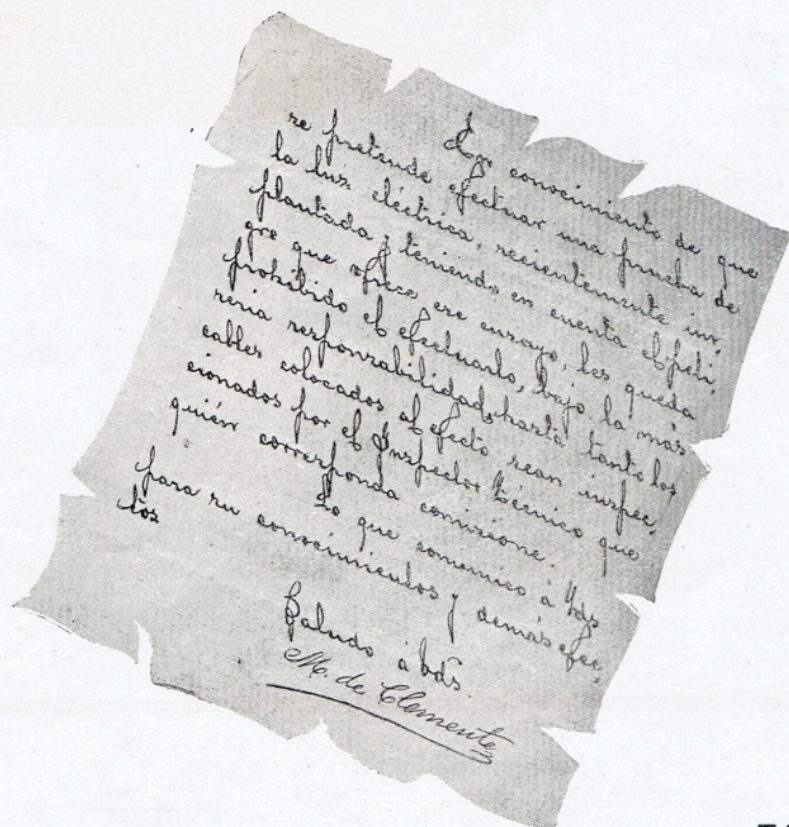 En conocimiento de que
se pretende efectuar una prueba de
la luz eléctrica, recientemente im,
plantada y teniendo en cuenta el peli,
gro que ofrece ese ensayo, les queda
prohibido el efectuarlo, bajo la más
seria responsabilidad, hasta tanto los
cables colocados al efecto sean inspec,
cionados por el Inspector técnico que
quién corresponda comisione.
Lo que comunico à Vds
para su conocimientos y demás efec,
tos
Saludo à Vds.
M. de Clemente